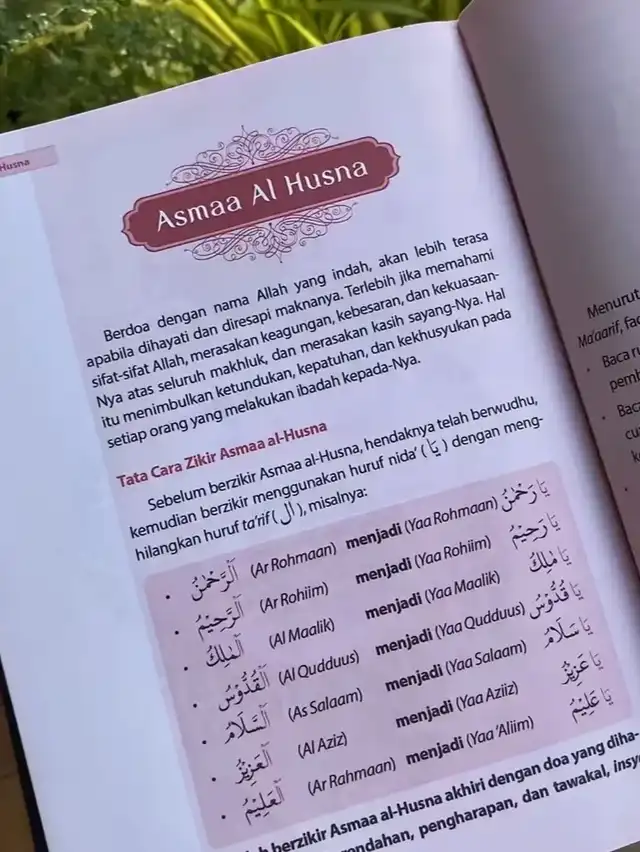 Husna
Asmaa Al Husna
Berdoa dengan nama Allah yang indah, akan lebih terasa
apabila dihayati dan diresapi maknanya. Terlebih jika memahami
sifat-sifat Allah, merasakan keagungan, kebesaran, dan kekuasaan-
Nya atas seluruh makhluk, dan merasakan kasih sayang-Nya. Hal
itu menimbulkan ketundukan, kepatuhan, dan kekhusyukan pada
setiap orang yang melakukan ibadah kepada-Nya.
Tata Cara Zikir Asmaa al-Husna
Sebelum berzikir Asmaa al-Husna, hendaknya telah berwudhu,
kemudian berzikir menggunakan huruf nida' (يَا) dengan meng-
hilangkan huruf ta'rif (ال), misalnya:
• اَلرَّحْمٰنُ (Ar Rohmaan) menjadi (Yaa Rohmaan) يَا رَحْمٰنُ
• اَلرَّحِيْمُ (Ar Rohiim) menjadi (Yaa Rohiim) يَا رَحِيْمُ
• اَلْمَلِكُ (Al Maalik) menjadi (Yaa Maalik) يَا مَلِكُ
• اَلْقُدُّوْسُ (Al Qudduus) menjadi (Yaa Qudduus) يَا قُدُّوْسُ
• اَلسَّلَامُ (As Salaam) menjadi (Yaa Salaam) يَا سَلَامُ
• اَلْعَزِيْزُ (Al Aziz) menjadi (Yaa Aziiz) يَا عَزِيْزُ
• اَلْعَلِيْمُ (Ar Rahmaan) menjadi (Yaa 'Aliim) يَا عَلِيْمُ
berzikir Asmaa al-Husna akhiri dengan doa yang diha-
pengharapan, dan tawakal,
Menurut
Ma'aarif,
• Baca
• Baca